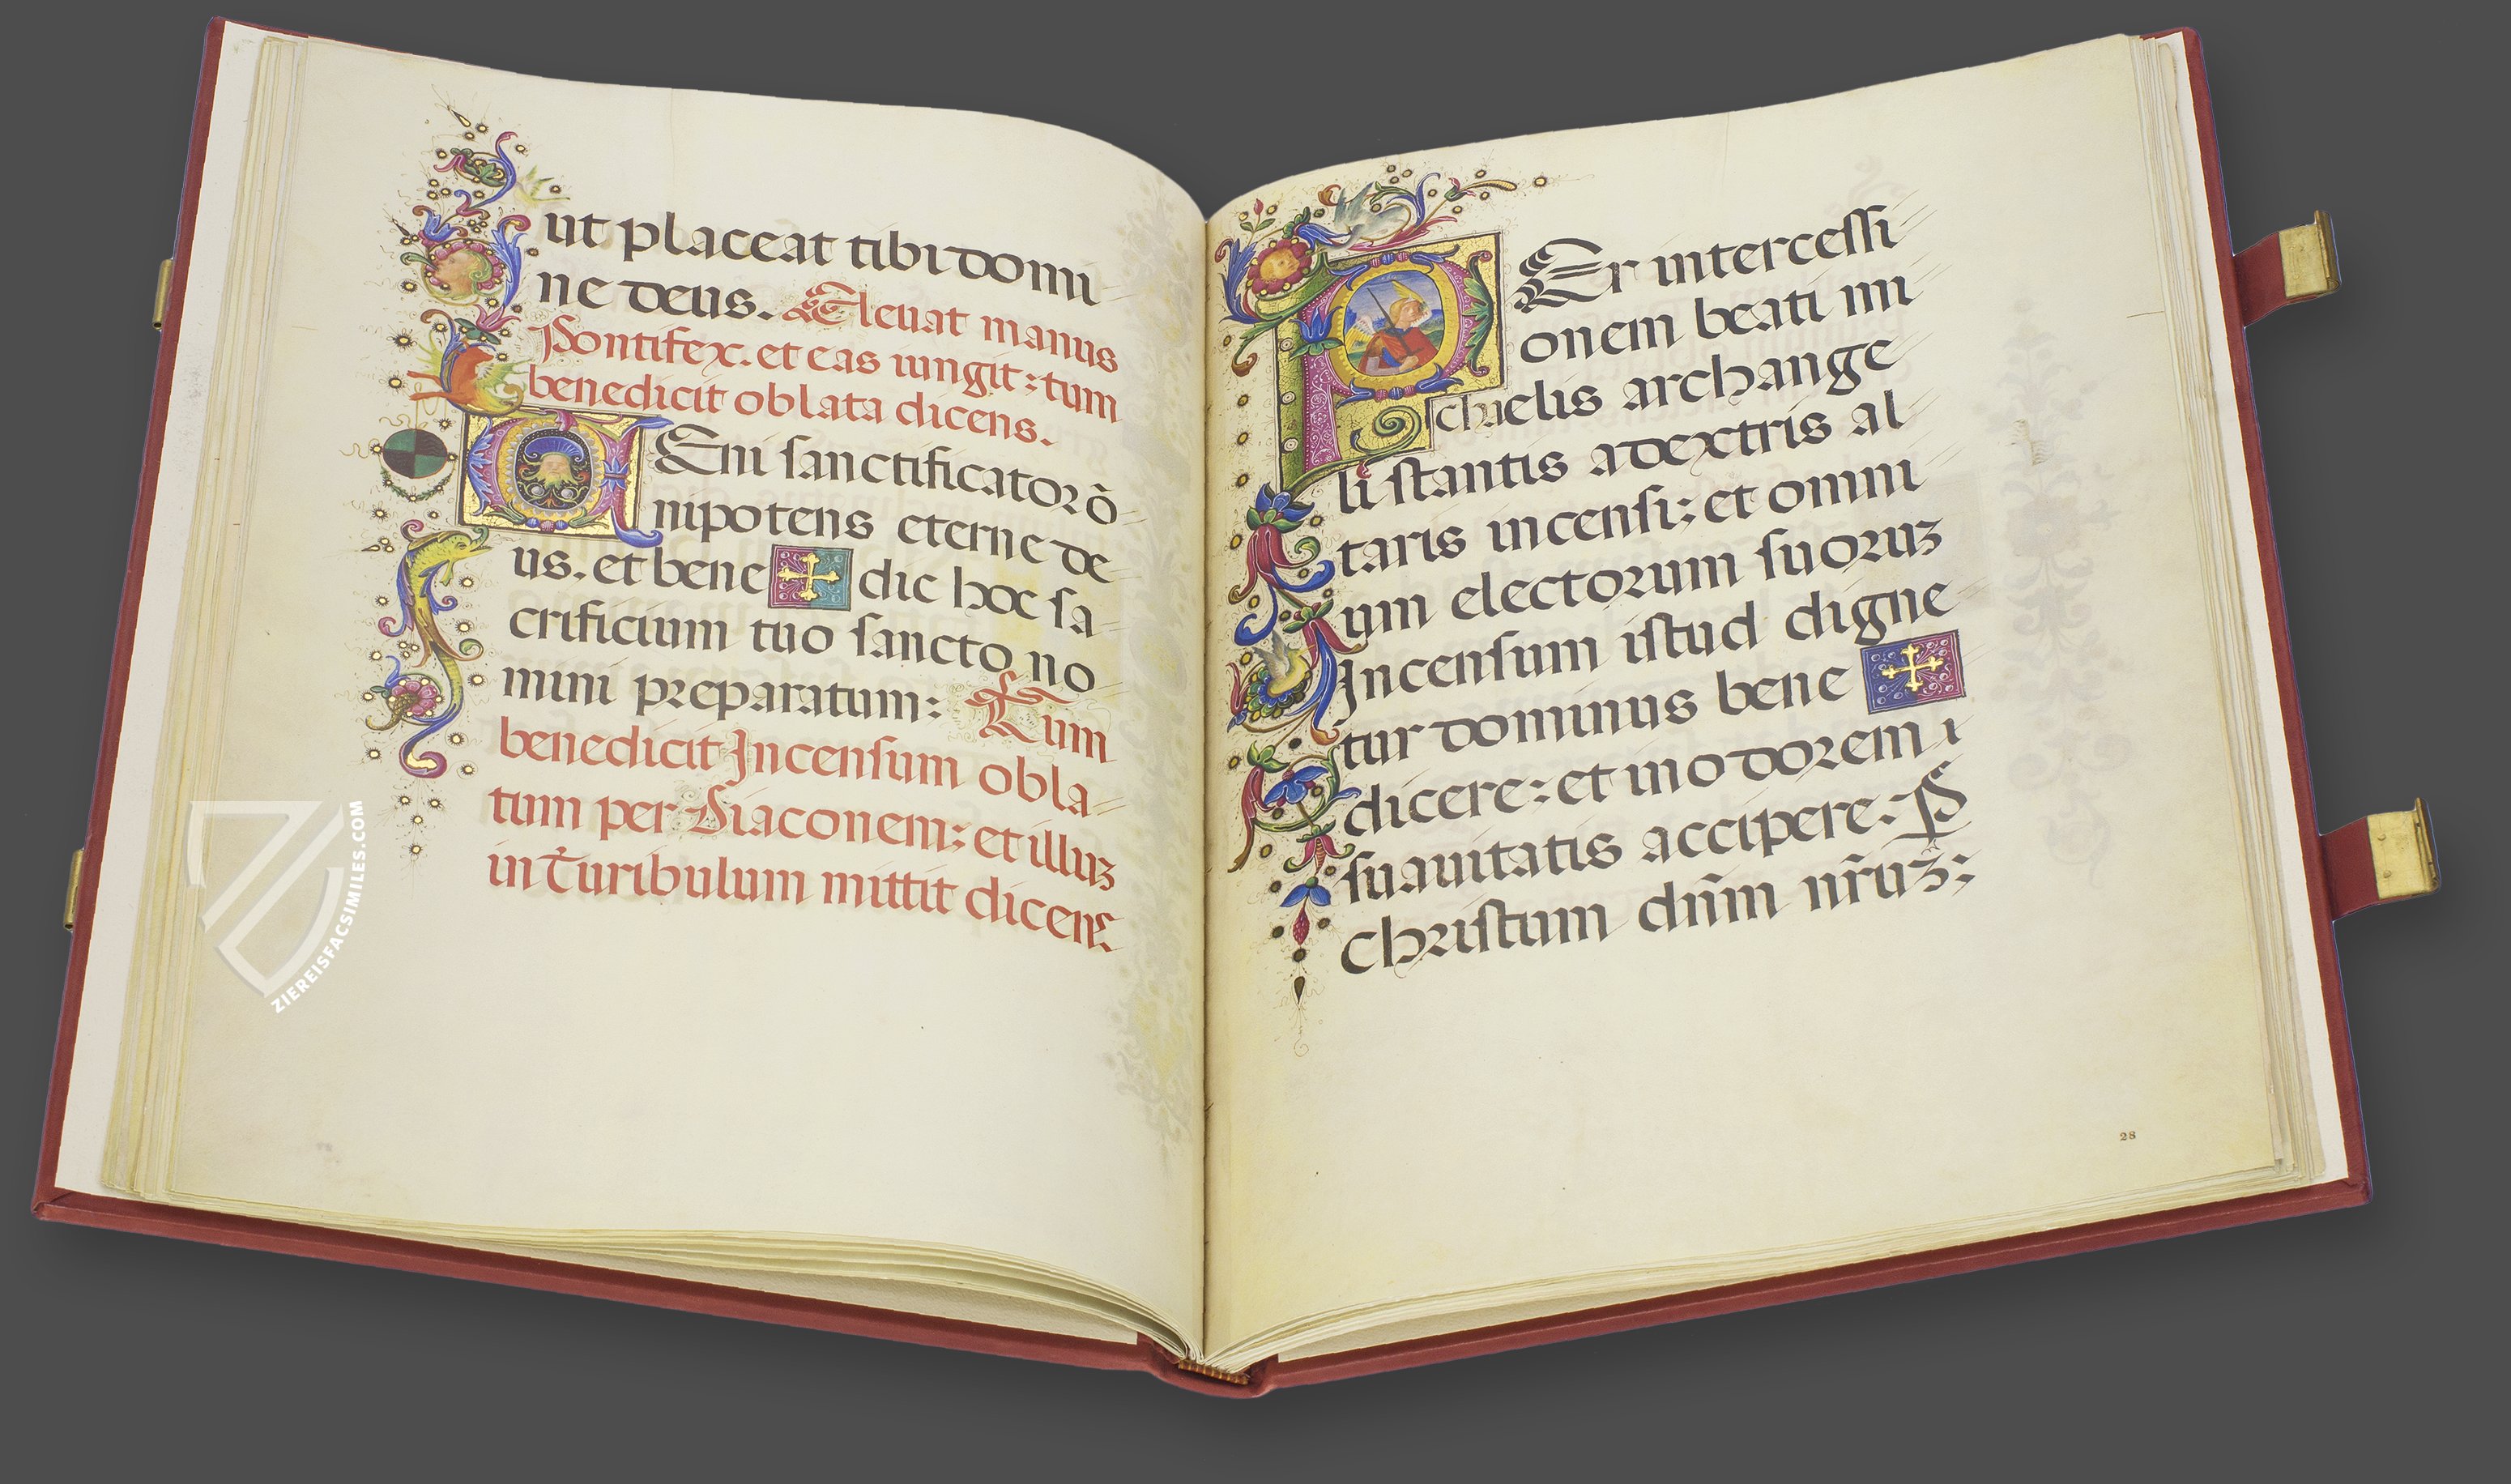 ut placeat tibi domi
ne deus. Eleuat manus
Pontifex. et eas iungit: tum
benedicit oblata dicens.
VEni sanctificator õ
nipotens eterne de
us. et bene ✠ dic hoc sa
crificium tuo sancto no
mini preparatum: Tum
benedicit Incensum obla
tum per Diaconem: et illuz
in Turibulum mittit dicens:
PEr intercessi
onem beati mi
chaelis archange
li stantis a dextris al
taris incensi: et omni
um electorum suoruz
Incensum istud digne
tur dominus bene ✠
dicere: et in odorem i
suauitatis accipere. P
Christum dñm nr̃uz:
28
ZIEREISFACSIMILES.COM